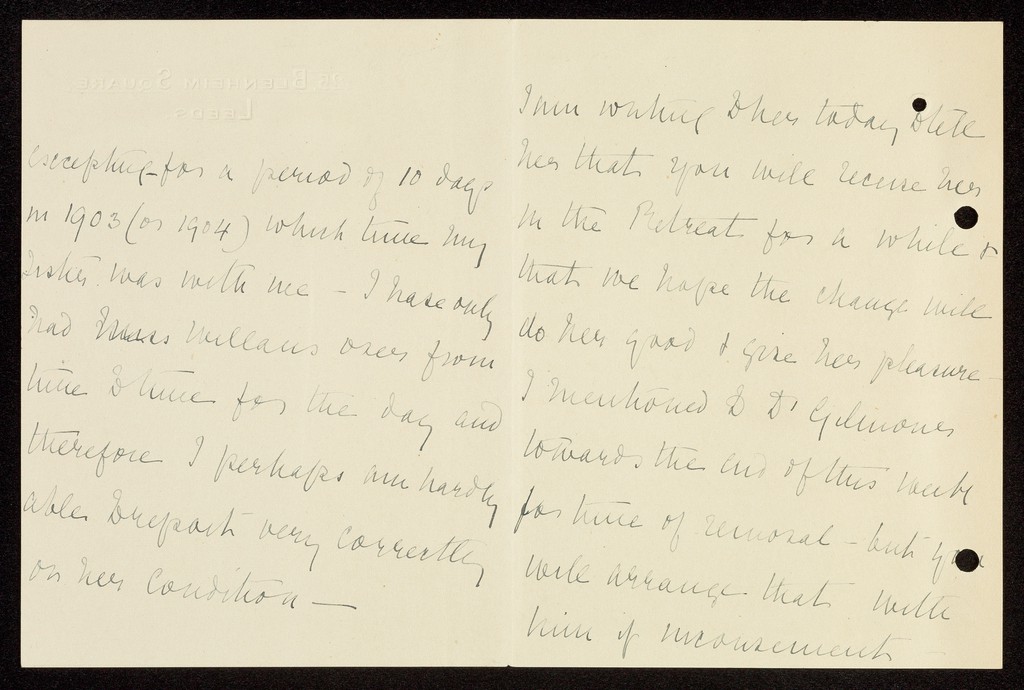 excepting for a period of 10 days
in 1903 (or 1904) which time my
sister was with me – I have only
had Miss Willans over from
time to time for the day and
therefore I perhaps am hardly
able to report very correctly
on her condition –
I am writing to her today to tell
her that you will receive her
in the Retreat for a while &
that we hope the change will
do her good & give her pleasure –
I mentioned to Dr Gilmour
towards the end of this week
for time of removal – but you
will arrange that with
him if inconvenient –
25 BLENHEIM SQUARE,
LEEDS